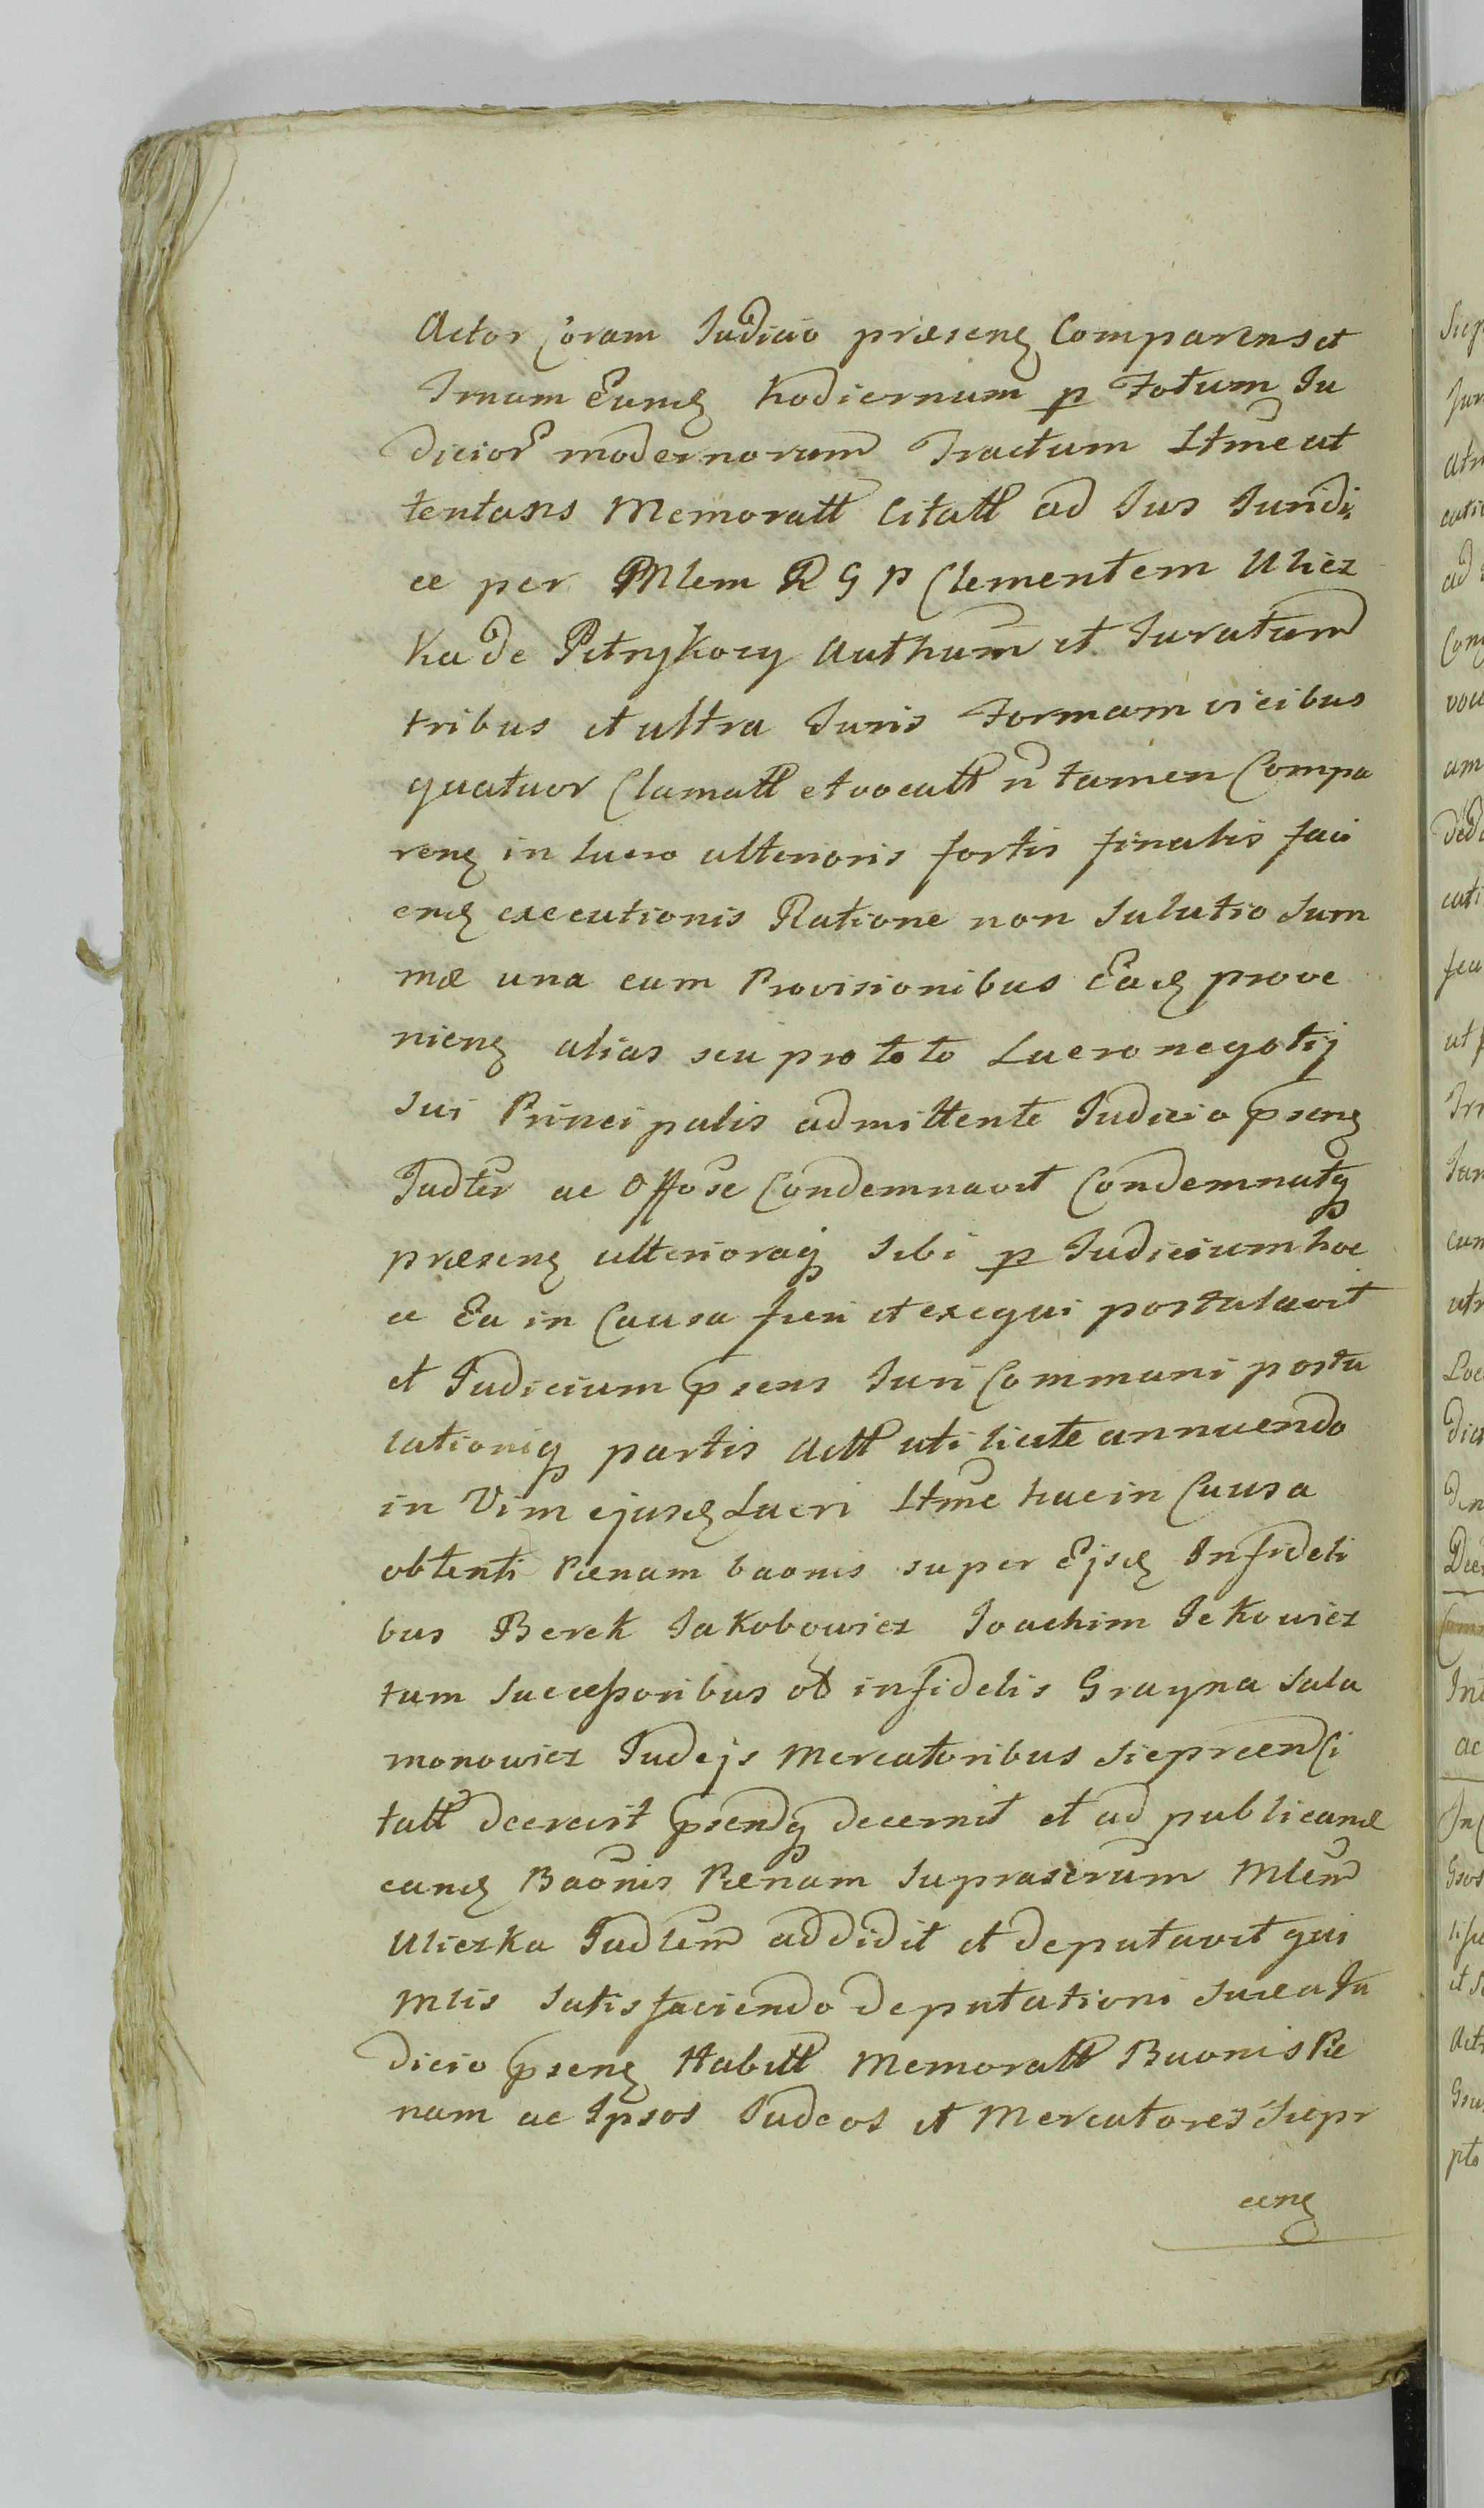 Actor Coram Judicio præsenȝ Comparens et
Trnam Eundȝ hodiernum p Totum Ju
dicior modernorum Tractum Ltme at
tentans Memoratt Citatt ad Jus Juridi
ce per Mlem R G P Clementem Ulicz
ka de Petrykozy Authum et Juratum
tribus et ultra Juris Formam vicibus
quatuor Clamatt et vocatt n tamen Compa
renȝ in lucro ulterioris fortis finalis faci
endȝ executionis Ratione non Solutio Sum
mæ una cum Provisionibus Eadȝ prove
nienȝ alias seu pro toto Lucro negotij
sui Principalis admittente Judicio psenȝ
Judter ac Offose Condemnavit Condemnatq
præsenȝ ulterioraq sibi p Judicium hoc
ce Ea in Causa fieri et exequi postulavit
et Judicium psens Juri Communi postu
lationiq partis Actt uti licite annuendo
in Vim ejusdȝ Lucri Ltme hac in Causa
obtenti Pænam baonis super Ejsdȝ Infideli
bus Berek Jakobowicz Joachim Jekowicz
tum Successoribus ol infidelis Grayna Sala
monowicz Judejs Mercatoribus Sieprcen Ci
tatt decrevit psendq decernit et ad publicand
eandȝ Baonis Pænam Suprascrum Mlem
Uliczka Judlem addidit et deputavit qui
Mlis satisfaciendo deputationi suæ a Ju
dicio psenȝ Habitt Memoratt Baonis Pæ
nam ac Ipsos Judeos et Mercatores Siepr
cenȝ